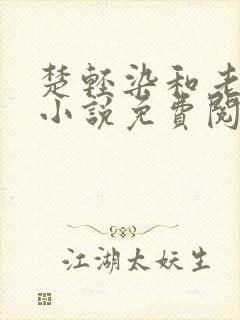 楚轻染和老
小説免費閱
江湖太妖生